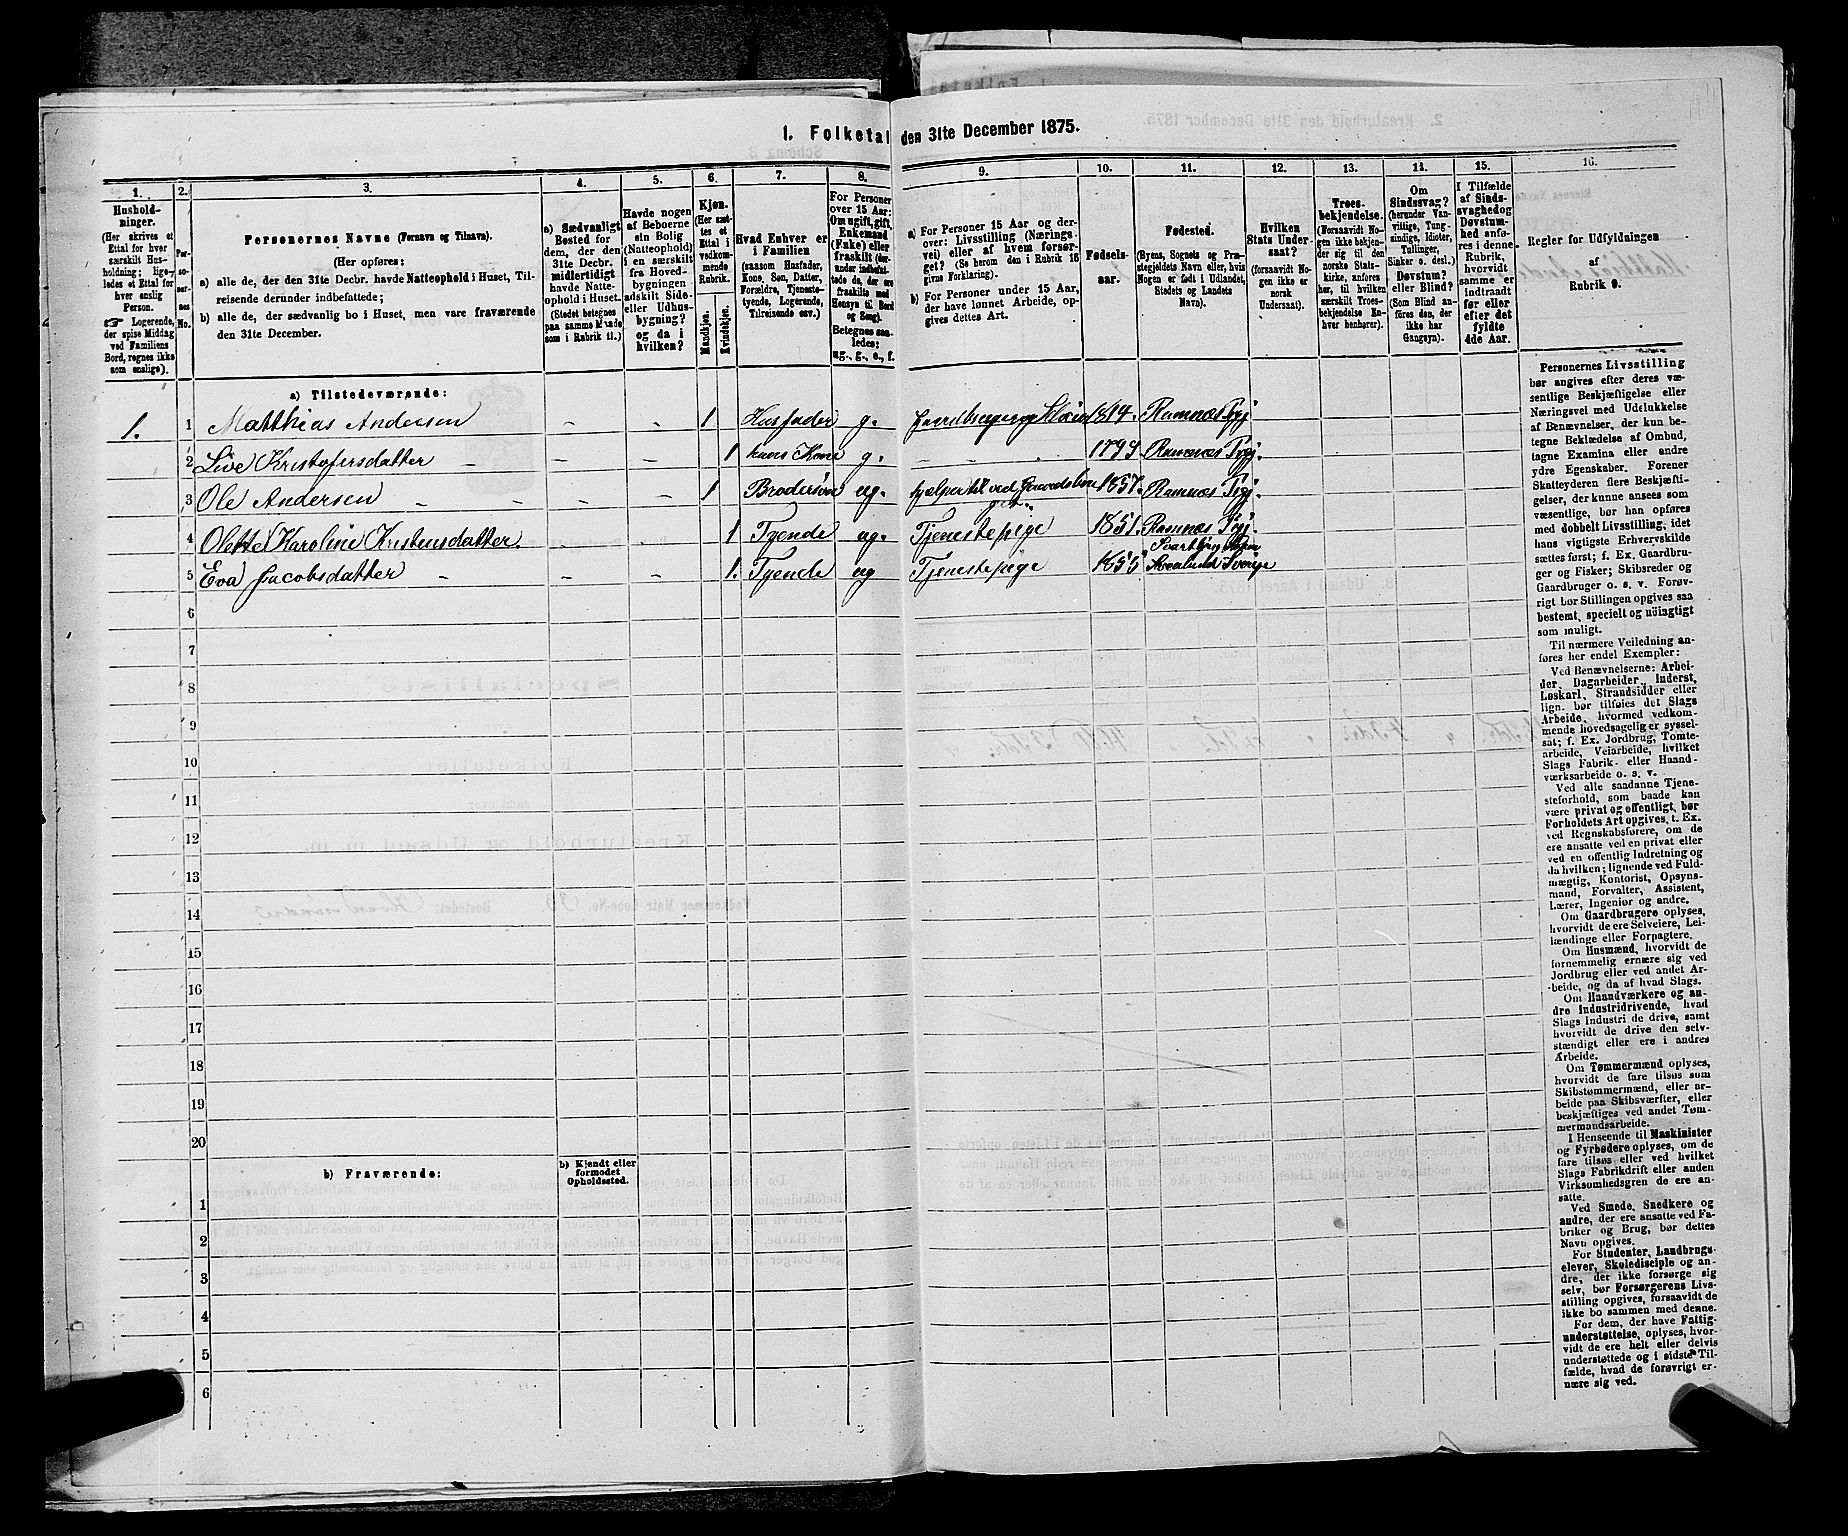 1. Folketal den 31te December 1875.
1.
Hushold-
ninger.
(Her skrives et
Ettal for hver
særskilt Hus-
holdning; lige-
ledes et Ettal for
hver enslig
Person.
☞ Logerende,
der spise Middag
ved Familiens
Bord, regnes ikke
som enslige).
2.
Per-
so-
ner-
nes
No.
3.
Personernes Navne (Fornavn og Tilnavn).
(Her opføres:
a) alle de, der den 31te Decbr. havde Natteophold i Huset, Til-
reisende derunder indbefattede;
b) alle de, der sædvanlig bo i Huset, men vare fraværende
den 31te December.
4.
a) Sædvanligt
Bosted for
dem, der den
31te Decbr.
midlertidigt
havde Natte-
ophold i Huset.
(Stedet betegnes
paa samme Maade
som i Rubrik 11.)
5.
Havde nogen
af Beboerne
sin Bolig
(Natteophold)
i en særskilt
fra Hoved-
bygningen
adskilt Side-
eller Udhus-
bygning?
og da i
hvilken?
6.
Kjøn.
(Her sæt-
tes et
Ettal i
vedkom-
mende
Rubrik.
Mandkjøn.
Kvindekjøn.
7.
Hvad Enhver er
i Familien
(saasom Husfader,
Kone, Søn, Datter,
Forældre, Tjeneste-
tyende, Logerende,
Tilreisende osv.)
8.
For Personer
over 15 Aar:
Om ugift, gift,
Enkemand
(Enke) eller
fraskilt (der-
under indbefat-
tede de, der ere
fraskilte med
Hensyn til Bord
og Seng).
Betegnes saa-
ledes:
ug., g., e., f.
9.
a) For Personer 15 Aar og der-
over: Livsstilling (Nærings-
vei) eller af hvem forsør-
get? (Se herom den i Rubrik 16
givne Forklaring).
b) For Personer under 15 Aar,
der have lønnet Arbeide, op-
gives dettes Art.
10.
Fødsels-
aar.
11.
Fødested.
(Byens, Sognets og Præ-
stegjeldets Navn eller, hvis
Nogen er født i Udlandet,
Stedets og Landets
Navn).
12.
Hvilken
Stats Under-
saat?
(forsaavidt No-
gen ikke er
norsk
Undersaat).
13.
Troes-
bekjendelse.
(Forsaavidt No-
gen ikke bekjen-
der sig til den
norske Stats-
kirke, anføres
her, til hvilken
særskilt Troes-
bekjendelse En-
hver henhører).
14.
Om
Sindssvag?
(herunder Van-
vittige, Tung-
sindige, Idioter,
Tullinger,
Sinker o. desl.)
Døvstum?
eller Blind?
(Som Blind an-
føres den, der
ikke har
Gangsyn).
15.
I Tilfælde
af Sinds-
svaghed og
Døvstum-
hed anfø-
res i denne
Rubrik,
hvorvidt
samme er
indtraadt
før eller
efter det
fyldte
4de Aar.
16.
Regler for Udfyldningen
af
Rubrik 9.
a) Tilstedeværende:
1. 1 Matthias Andersen - - 1 Husfader g. Gaardbruger og Selveier 1814. Ramnæs Prgj.
2 Live Kristofersdatter - - - 1 hans Kone g. - - - Ramnæs Prgj.
3 Ole Andersen - - 1 Brodersøn ug. hjælper til ved Gaardsbru 1857. Ramnæs Prgj.
get.
4 Olette Karoline Kristensdatter. - - 1 Tyende ug. Tjenestepige 1851. Ramnæs Prgj.
5 Eva Jacobsdatter - - - 1. Tyende ug Tjenestepige 1855 Sverige
6
7
8
9
10
11
12
13
14
15
16
17
18
19
20
b) Fraværende:
b) Kjendt eller
formodet
Opholdssted.
1
2
3
4
5
6
Personernes Livsstilling
bør angives efter deres væ-
sentlige Beskjæftigelse eller
Næringsvei med Udelukkelse
af Benævnelser, der kun be-
tegne Beklædelse af Ombud,
tagne Examina eller andre
ydre Egenskaber. Forener
Skatteyderen flere Beskjæfti-
gelser, der kunne ansees som
væsentlige, bør han opføres
med dobbelt Livsstilling, idet
hans vigtigste Erhvervskilde
sættes først; f. Ex. Gaardbru-
ger og Fisker; Skibsreder og
Gaardbruger o. s. v. Forøv-
rigt bør Stillingen opgives saa
bestemt, specielt og nøiagtigt
som muligt.
Til nærmere Veiledning an-
føres her endel Exempler:
Ved Benævnelserne: Arbei-
der, Dagarbeider, Inderst,
Løskarl, Strandsidder eller
lign. bør tilføies det Slags
Arbeide, hvormed vedkom-
mende hovedsagelig er syssel-
sat; f. Ex. Jordbrug, Tomte-
arbeide, Veiarbeide, hvilket
Slags Fabrik- eller Haand-
værksarbeide o. s. v.
Ved alle saadanne Tjene-
steforhold, som baade kan
være privat og offentligt, bør
Forholdets Art opgives, t. Ex.
ved Regnskabsførere, om de
ere ansatte ved en privat eller
ved en offentlig Indretning og
da hvilken; lignende ved Fuld-
mægtig, Kontorist, Opsyns-
mand, Forvalter, Assistent,
Lærer, Ingeniør og andre.
Om Gaardbrugere oplyses,
hvorvidt de ere Selveiere, Lei-
lændinge eller Forpagtere.
Om Husmænd, hvorvidt de
fornemmelig ernære sig ved
Jordbrug eller ved andet Ar-
beide, og da af hvad Slags.
Om Haandværkere og an-
dre Industridrivende, hvad
Slags Industri de drive, samt
hvorvidt de drive den selv-
stændigt eller ere i andres
Arbeide.
Om Tømmermænd oplyses,
hvorvidt de fare tilsøs som
Skibstømmermænd, eller ar-
beide paa Skibsværfter, eller
beskjæftiges ved andet Tøm-
mermandsarbeide.
I Henseende til Maskinister
og Fyrbødere oplyses, om de
fare tilsøs eller ved hvilket
Slags Fabrikdrift eller anden
Virksomhedsgren de ere an-
satte.
Ved Smede, Snedkere og
andre, der ere ansatte ved Fa-
briker og Brug, bør dettes
Navn opgives.
For Studenter, Landbrugs-
elever, Skoledisciple og an-
dre, der ikke forsørge sig
selv, bør Forsørgerens Livs-
stilling opgives, forsaavidt de
ikke bo sammen med denne.
For dem, der have Fattig-
understøttelse, oplyses, hvor-
vidt de ere helt eller delvis
understøttede og i sidste Til-
fælde, hvad de forøvrigt er-
nære sig ved.